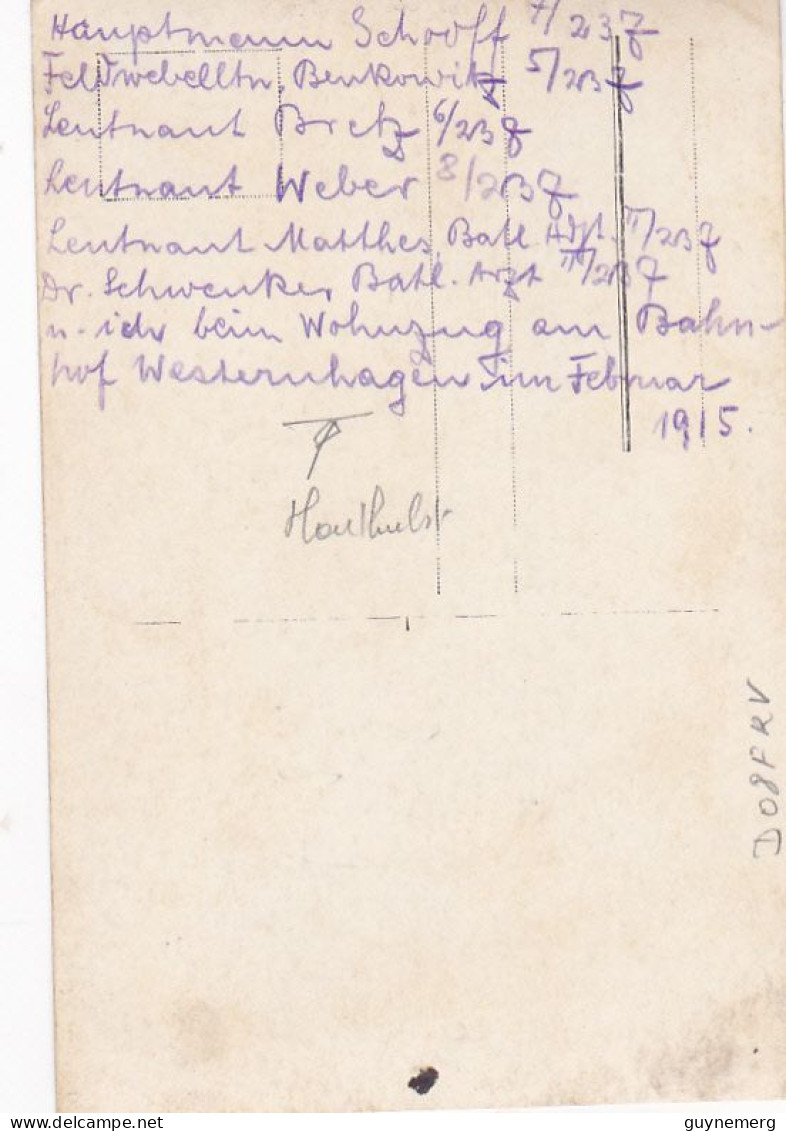 Hauptmann Schooff 7/233
Feldwebelltn. Benkowitz 5/233
Leutnant Bretz 6/233
Leutnant Weber 8/233
Leutnant Matthes, Batl. Adjt. II/233
Dr. Schwenker Batl. Arzt II/233
u. ich beim Wohnzug am Bahn-
hof Westernhagen im Februar
1915.
Houthulst
D08FRV
guynemerg